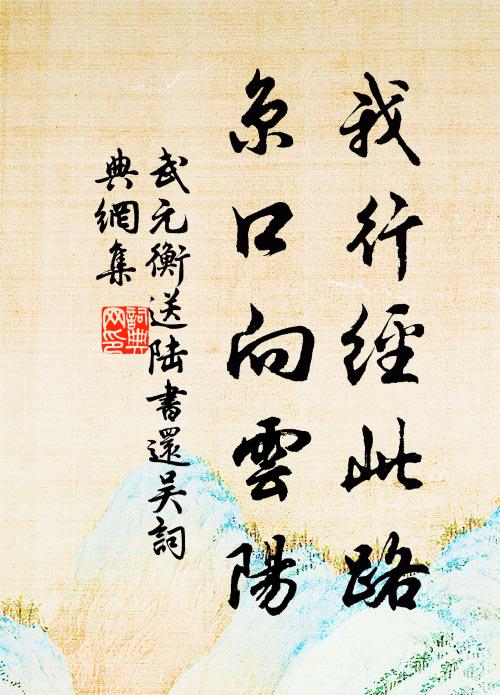 我行經此路
京口向雲陽
武元衡送陸書還吳詞
典網集
詞典网印